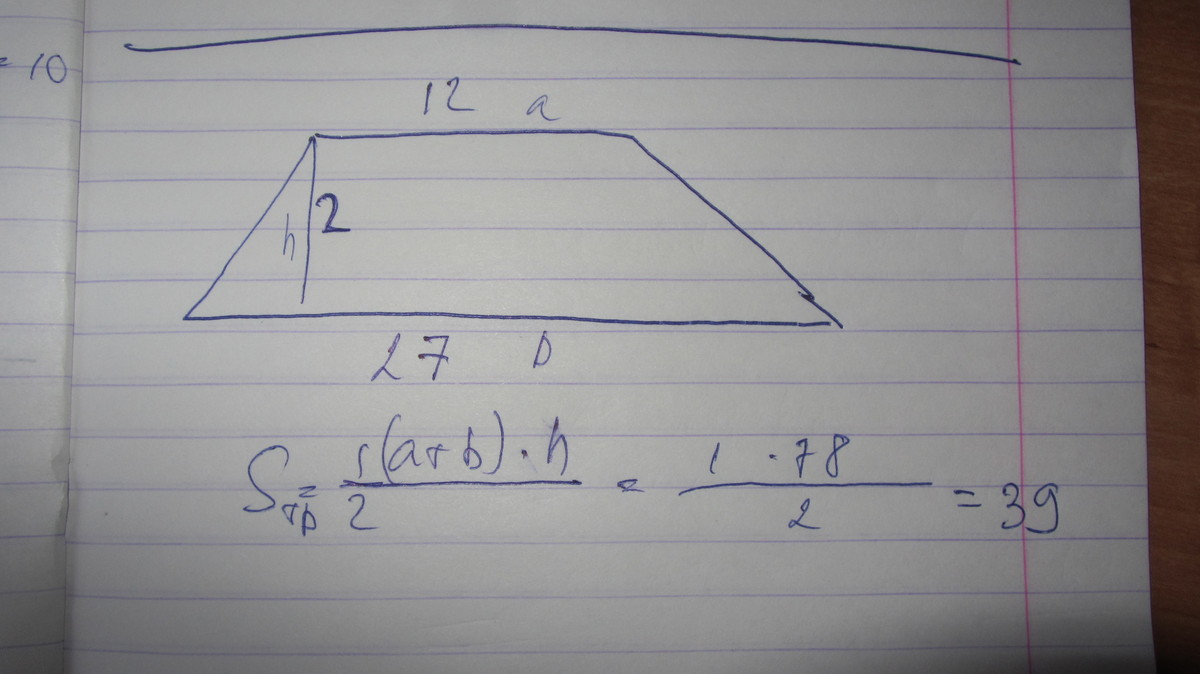 = 10
12 a
h 2
27 b
Sтр = 1(a+b)·h / 2 = 1 ·78 / 2 = 39